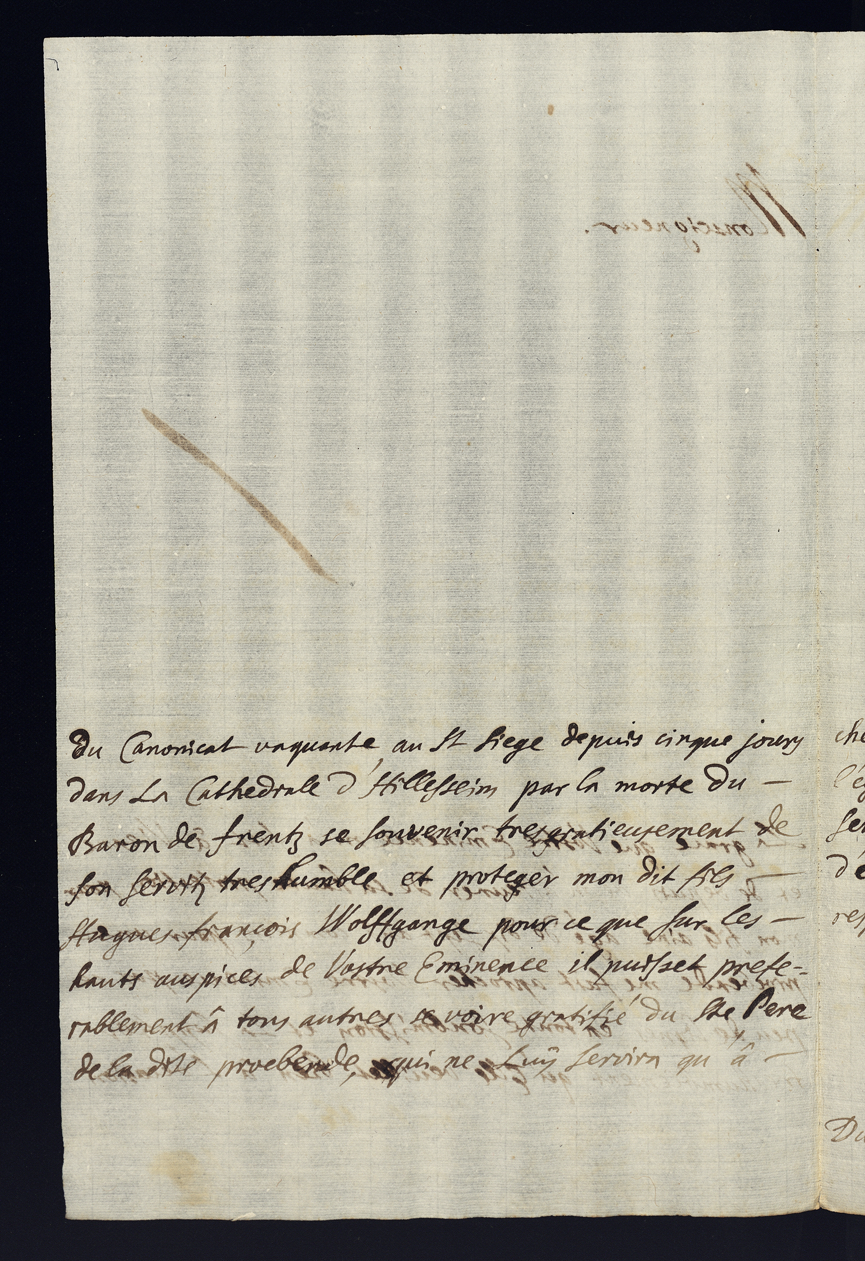 Monseigneur.
du Canonicat vaquante, au St Siege depuis cinque jours
dans La Cathedrale d'Hillesseim par la morte du —
Baron de frentz se souvenir tresgratieusement de
son servitz treshumble et proteger mon dit fils —
Hugues françois Wolffgange pour ce que sur les —
hauts auspices de Vostre Eminence il puisset prefe-
rablement â tous autres se voire gratifié du Ste Pere
de la dite proebende, qui ne Luÿ servira qu'â —
che
l'eg
ser
d'e
res
Du